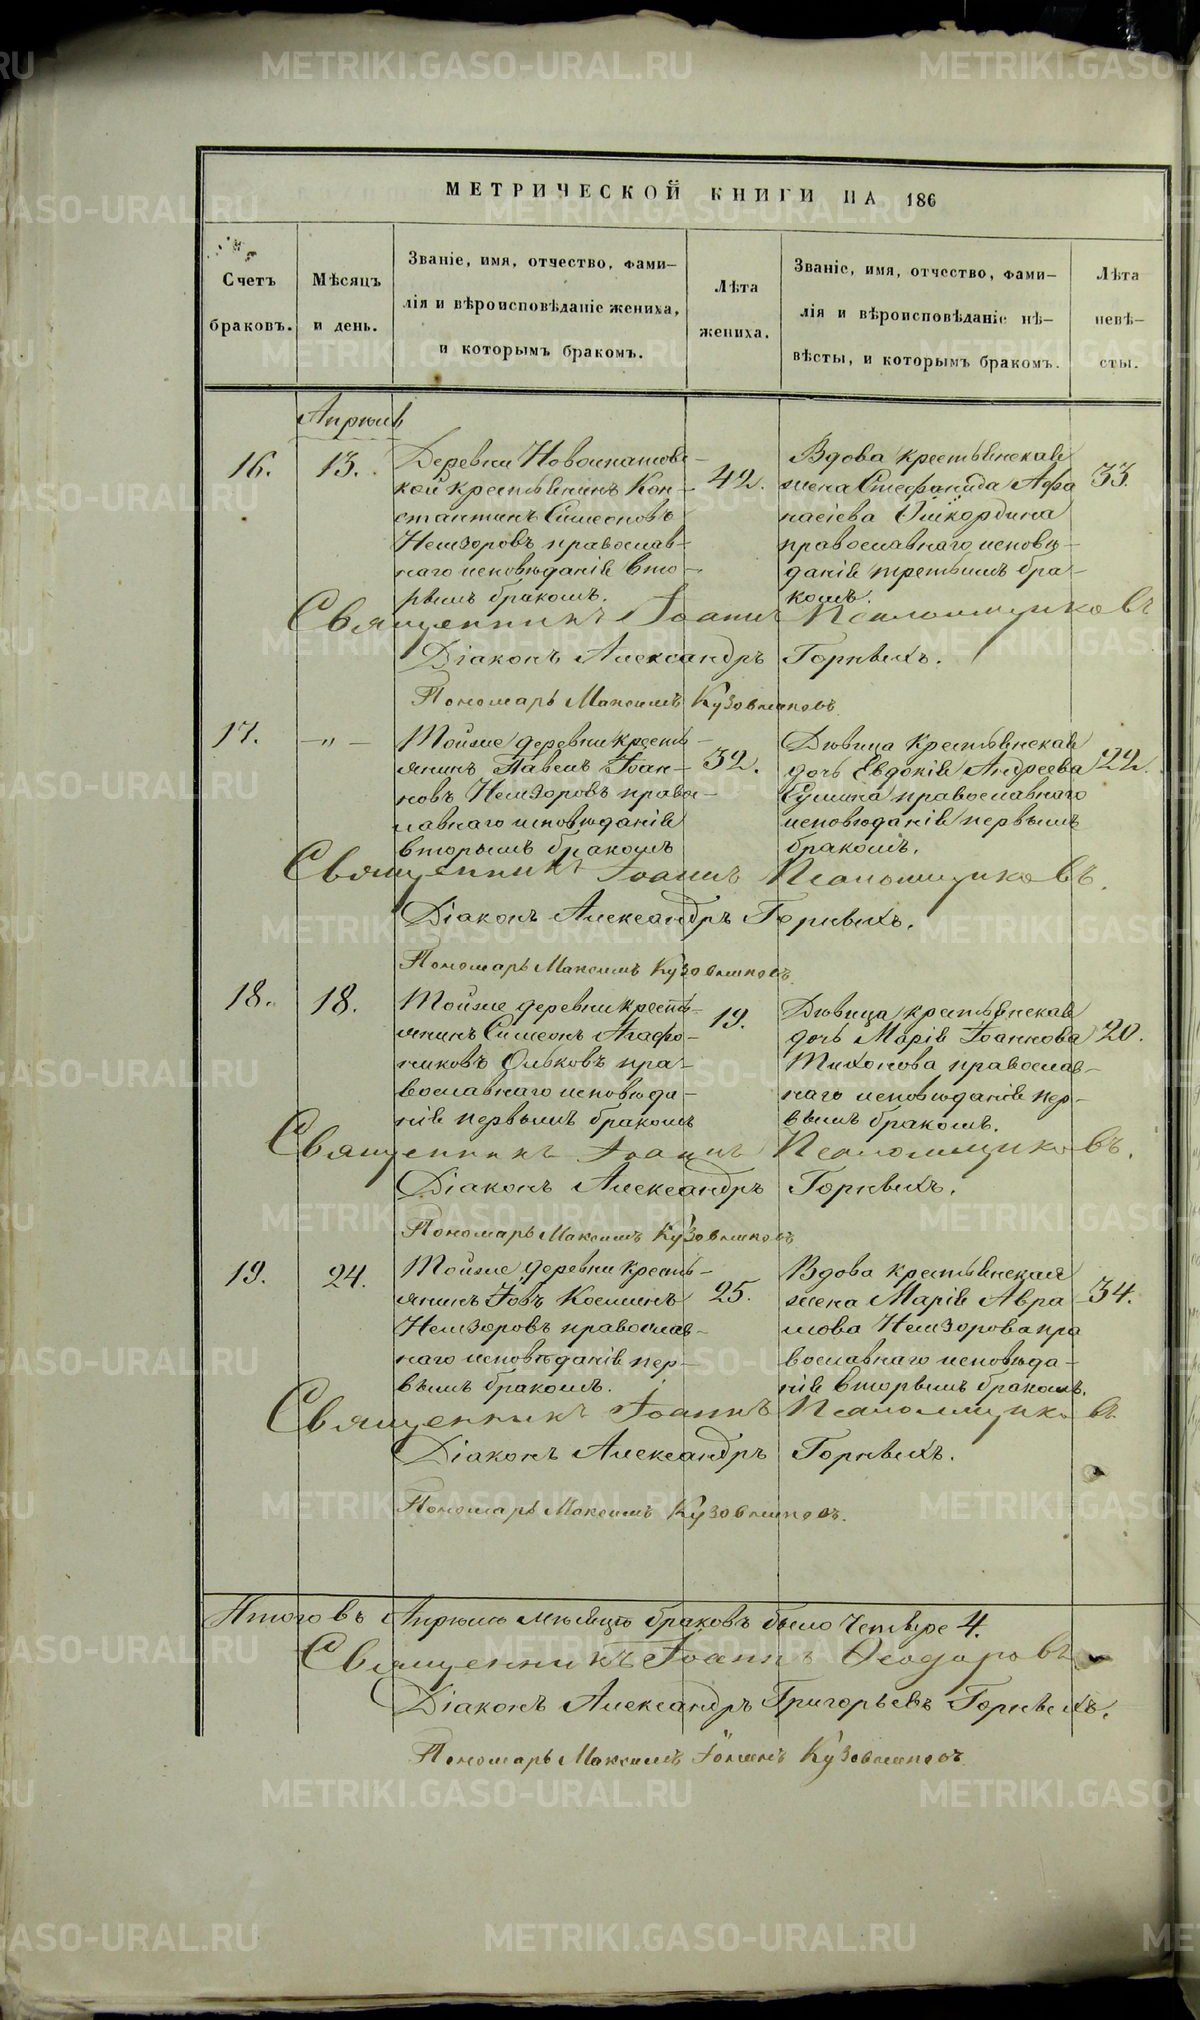 МЕТРИЧЕСКОЙ КНИГИ НА 186
Счетъ
браковъ.
Мѣсяцъ
и день.
Званіе, имя, отчество, фами-
лія и вѣроисповѣданіе жениха,
и которымъ бракомъ.
Лѣта
жениха.
Званіе, имя, отчество, фами-
лія и вѣроисповѣданіе нѣ-
вѣсты, и которымъ бракомъ.
Лѣта
невѣ-
сты.
Апрѣль
16.
13.
Деревни Новоипатовс-
кой крестьянинъ Кон-
стантинъ Симеоновъ
Немзоровъ православ-
наго исповѣданія вто-
рымъ бракомъ.
42.
Вдова крестьянская
жена Стефанида Афа
насіева Ошкордина
православнаго исповѣ-
данія третьимъ бра-
комъ.
33.
Священникъ Іоаннъ Псаломщиковъ
Діаконъ Александръ Горныхъ.
Пономарь Максимъ Кузовниковъ
17.
-"-
Тойже деревни кресть-
янинъ Павелъ Іоан-
новъ Немзоровъ право-
славнаго исповѣданія
вторымъ бракомъ
32.
Дѣвица крестьянская
дочь Евдокія Андреева
православнаго
исповѣданія первымъ
бракомъ.
22.
Священникъ Іоаннъ Псаломщиковъ.
Діаконъ Александръ Горныхъ.
Пономарь Максимъ Кузовниковъ.
18.
18.
Тойже деревни кресть-
янинъ Симеонъ Агафо-
никовъ Ольковъ пра-
вославнаго исповѣда-
нія первымъ бракомъ
19.
Дѣвица крестьянская
дочь Марія Іоаннова
Тихонова православ-
наго исповѣданія пер-
вымъ бракомъ.
20.
Священникъ Іоаннъ Псаломщиковъ.
Діаконъ Александръ Горныхъ.
Пономарь Максимъ Кузовниковъ
19.
24.
Тойже деревни кресть-
янинъ Іовъ Косминъ
Немзоровъ православ-
наго исповѣданія пер-
вымъ бракомъ.
25.
Вдова крестьянская
жена Марія Авра
мова Немзорова пра
вославнаго исповѣда-
нія вторымъ бракомъ.
34.
Священникъ Іоаннъ Псаломщиковъ
Діаконъ Александръ Горныхъ.
Пономарь Максимъ Кузовниковъ.
Итого въ Апрѣлѣ мѣсяцѣ браковъ было четверо 4.
Священникъ Іоаннъ Ѳеодоровъ
Діаконъ Александръ Григорьевъ Горныхъ.
Пономарь Максимъ Іоаннъ Кузовниковъ
METRIKI.GASO-URAL.RU